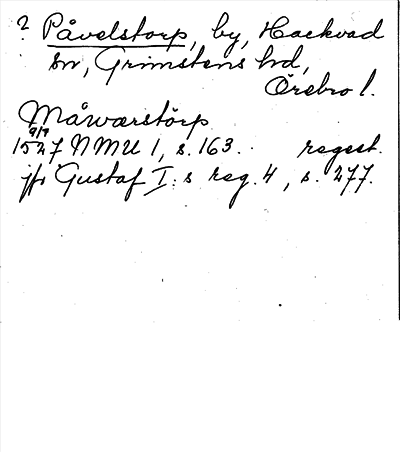 ? Påvelstorp, by, Hackvad
sn, Grimstens hd,
Örebro l.
Måwærstörp
9/9
1527 NMU 1, s. 163. regest.
jfr Gustaf I:s reg. 4, s. 277.